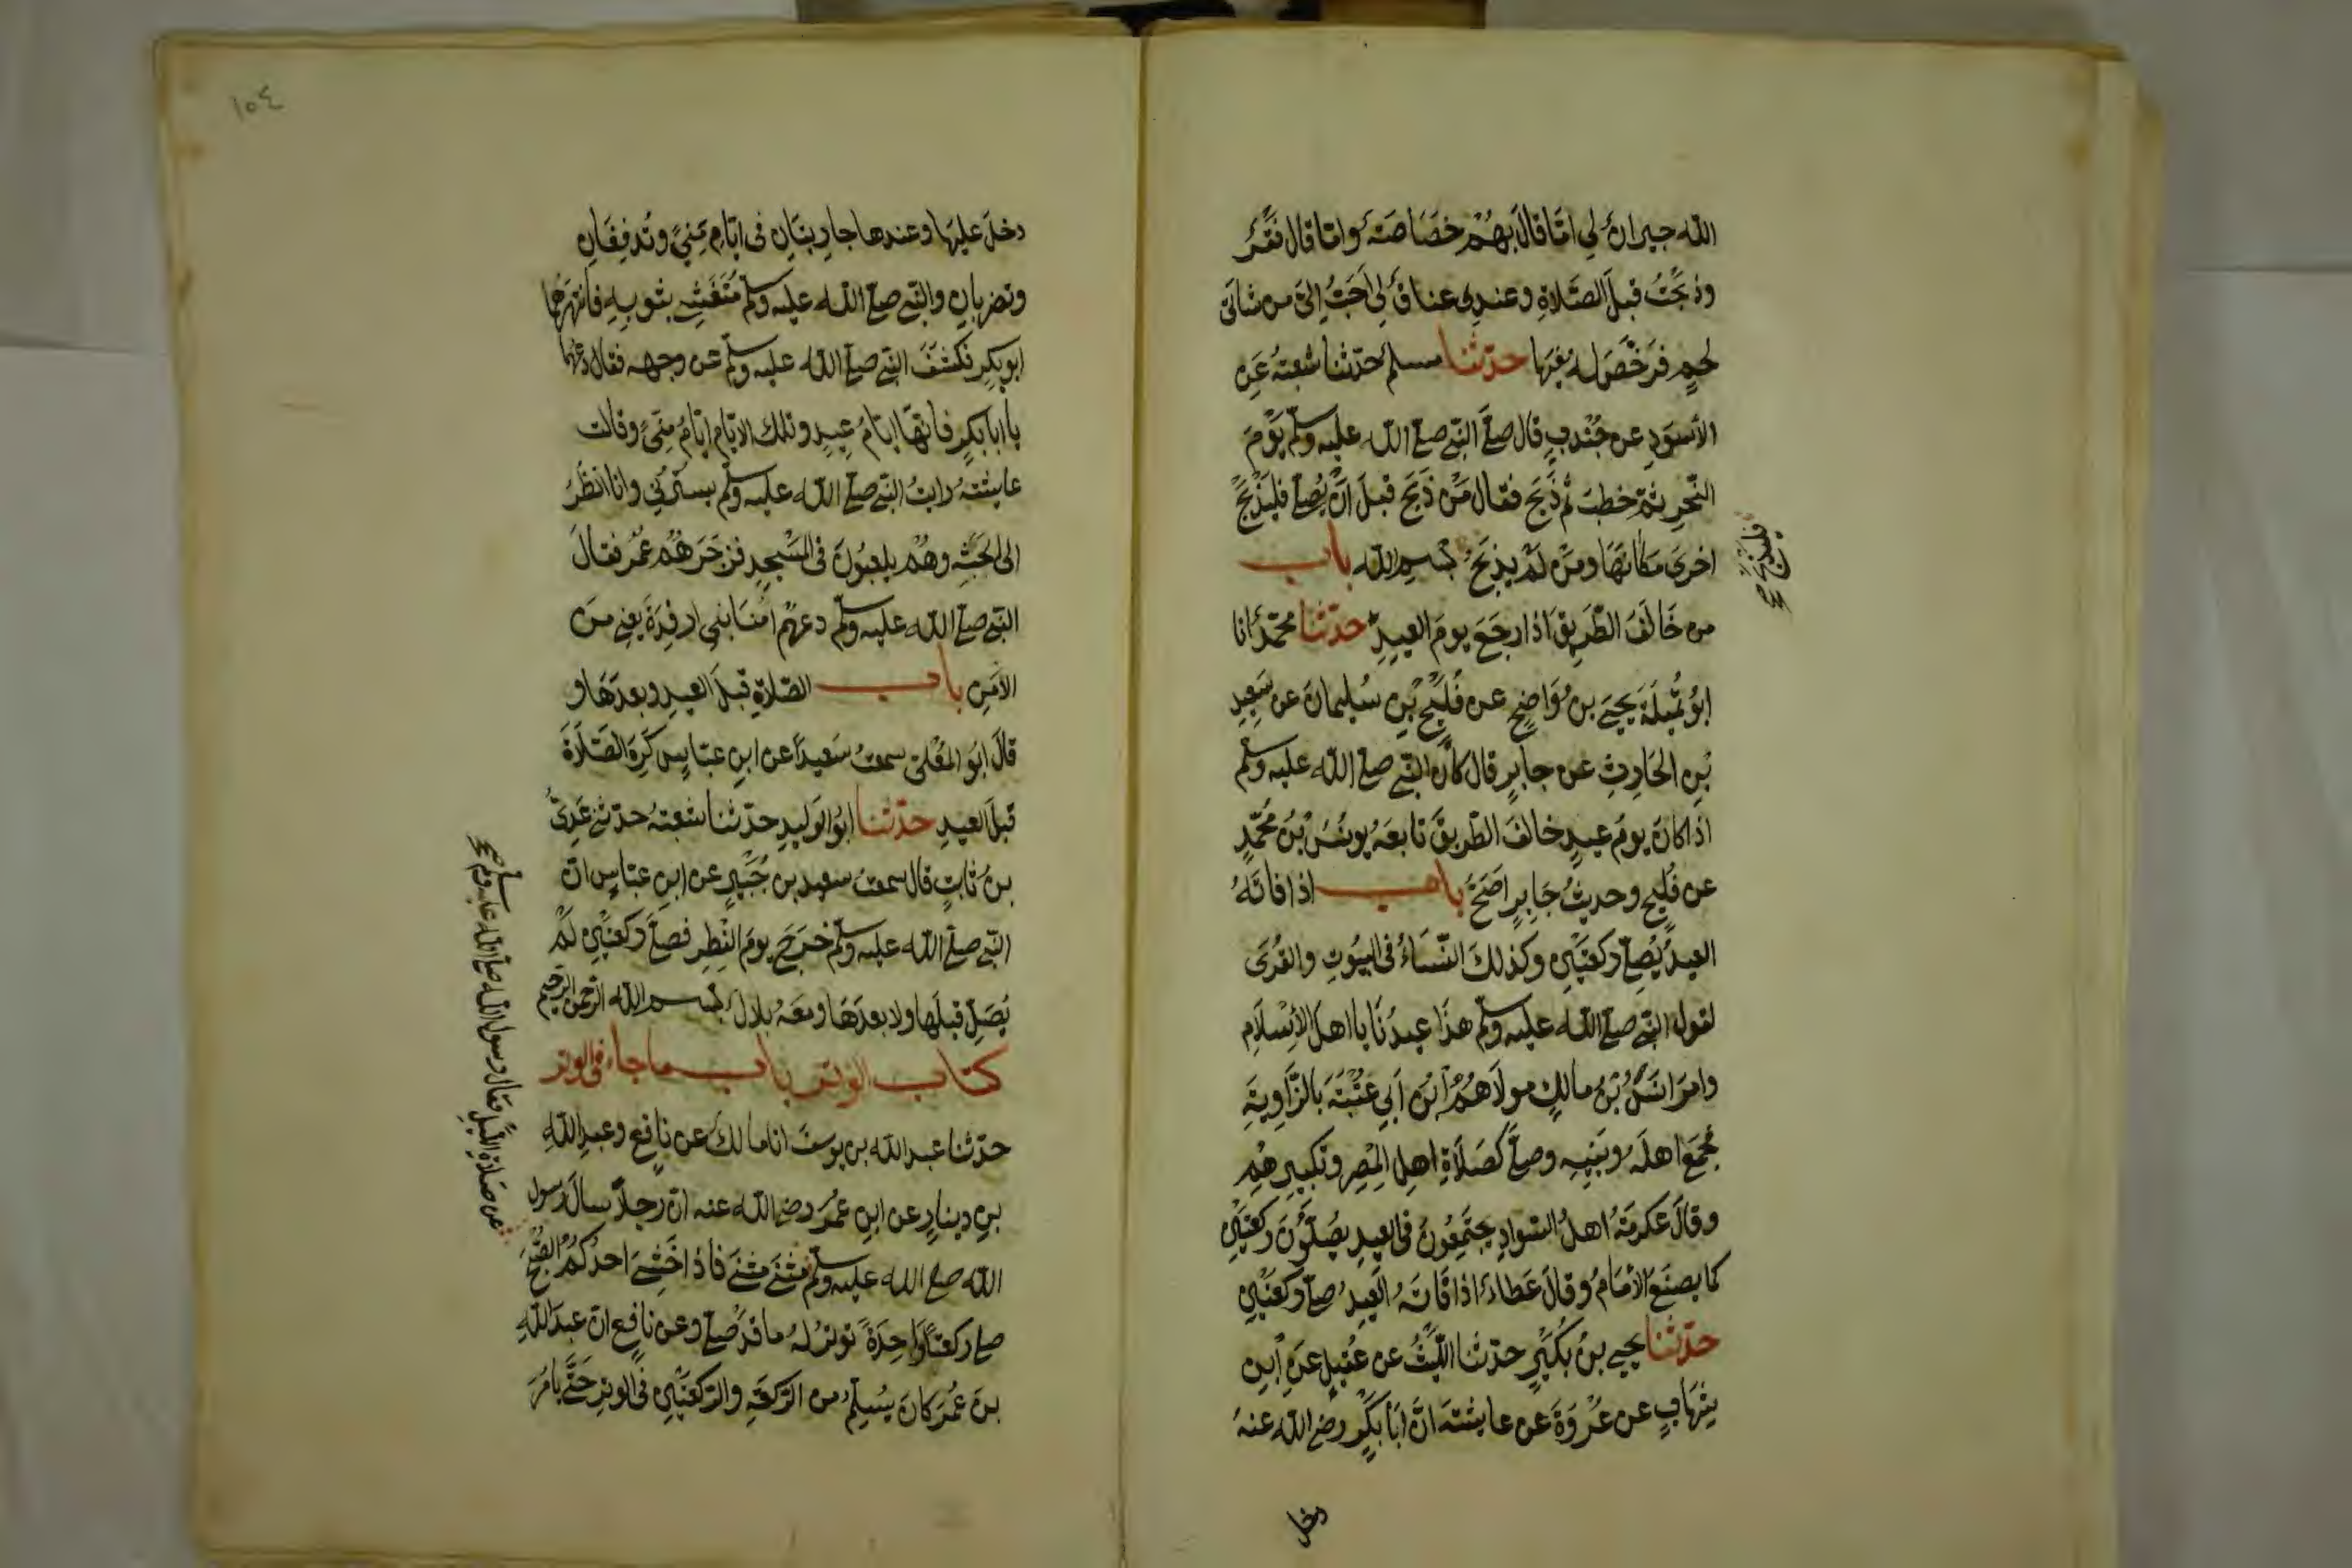 الله جيران لي امّا قال بهم خصاصة وامّا قال فقر
وذبحت قبل الصّلاة وعندي عناق لي احبّ اليّ من شاتي
لحم فرخّص له فيها حدّثنا مسلم حدّثنا شعبة عن
الأسود عن جندب قال صلّى النّبي صلى الله عليه وسلم يوم
النّحر ثمّ خطب ثم ذبح فقال من ذبح قبل ان يصلي فليذبح
اخرى مكانها ومن لم يذبح بسم الله باب
من خالف الطّريق اذا رجع يوم العيد حدّثنا محمّد انا
ابو تميلة يحيى بن واضح عن فليح بن سليمان عن سعيد
بن الحارث عن جابر قال كان النّبي صلى الله عليه وسلم
اذا كان يوم عيد خالف الطّريق تابعه يونس بن محمّد
عن فليح وحديث جابر اصحّ باب اذا فاته
العيد يصلّي ركعتين وكذلك النّساء في البيوت والقرى
لقول النّبي صلى الله عليه وسلم هذا عيدنا يا اهل الإسلام
وامر انس بن مالك مولاهم ابن ابي عتبة بالزّاوية
فجمع اهله وبنيه وصلّى كصلاة اهل المصر وتكبيرهم
وقال عكرمة اهل السّواد يجتمعون في العيد يصلّون ركعتين
كما يصنع الأمام وقال عطاء اذا فاته العيد صلّى ركعتين
حدّثنا يحيى بن بكير حدّثنا اللّيث عن عقيل عن ابن
شهاب عن عروة عن عايشة انّ ابا بكر رضي الله عنه
دخل
فليذبح صح
١٠٤
دخل عليها وعندها جاريتان في ايّام منى وتدفّفان
وتضربان والنّبي صلى الله عليه وسلم متغشّي بثوبه فانتهرهما
ابو بكر فكشف النّبي صلى الله عليه وسلم عن وجهه فقال دعهما
يا ابا بكر فانّها ايّام عيد وتلك الايّام ايّام منى وقالت
عايشة رايت النّبي صلى الله عليه وسلم يسترني وانا انظر
الى الحبشة وهم يلعبون في المسجد فزجرهم عمر فقال
النّبي صلى الله عليه وسلم دعهم امنا بني ارفدة يعني من
الأمن باب الصّلاة قبل العيد وبعدها و
قال ابو المعلّى سمعت سعيدا عن ابن عبّاس كره الصّلاة
قبل العيد حدّثنا ابو الوليد حدّثنا شعبة حدثني عديّ
بن ثابت قال سمعت سعيد بن جبير عن ابن عبّاس انّ
النّبي صلى الله عليه وسلم خرج يوم الفطر فصلّى ركعتين لم
يصلّ قبلها ولا بعدها ومعه بلال بسم الله الرّحمن الرّحيم
كتاب الوتر باب ما جاء في الوتر
حدّثنا عبد الله بن يوسف انا مالك عن نافع وعبد الله
بن دينار عن ابن عمر رضي الله عنه انّ رجلا سال رسول
الله صلى الله عليه وسلم مثنى مثنى فاذا خشي احدكم الصّبح
صلى ركعة واحدة توتر له ما قد صلّى وعن نافع انّ عبد الله
بن عمر كان يسلّم من الرّكعة والرّكعتين في الوتر حتّى يامر
عن صلاة اللّيل فقال رسول الله صلى الله عليه وسلم صح